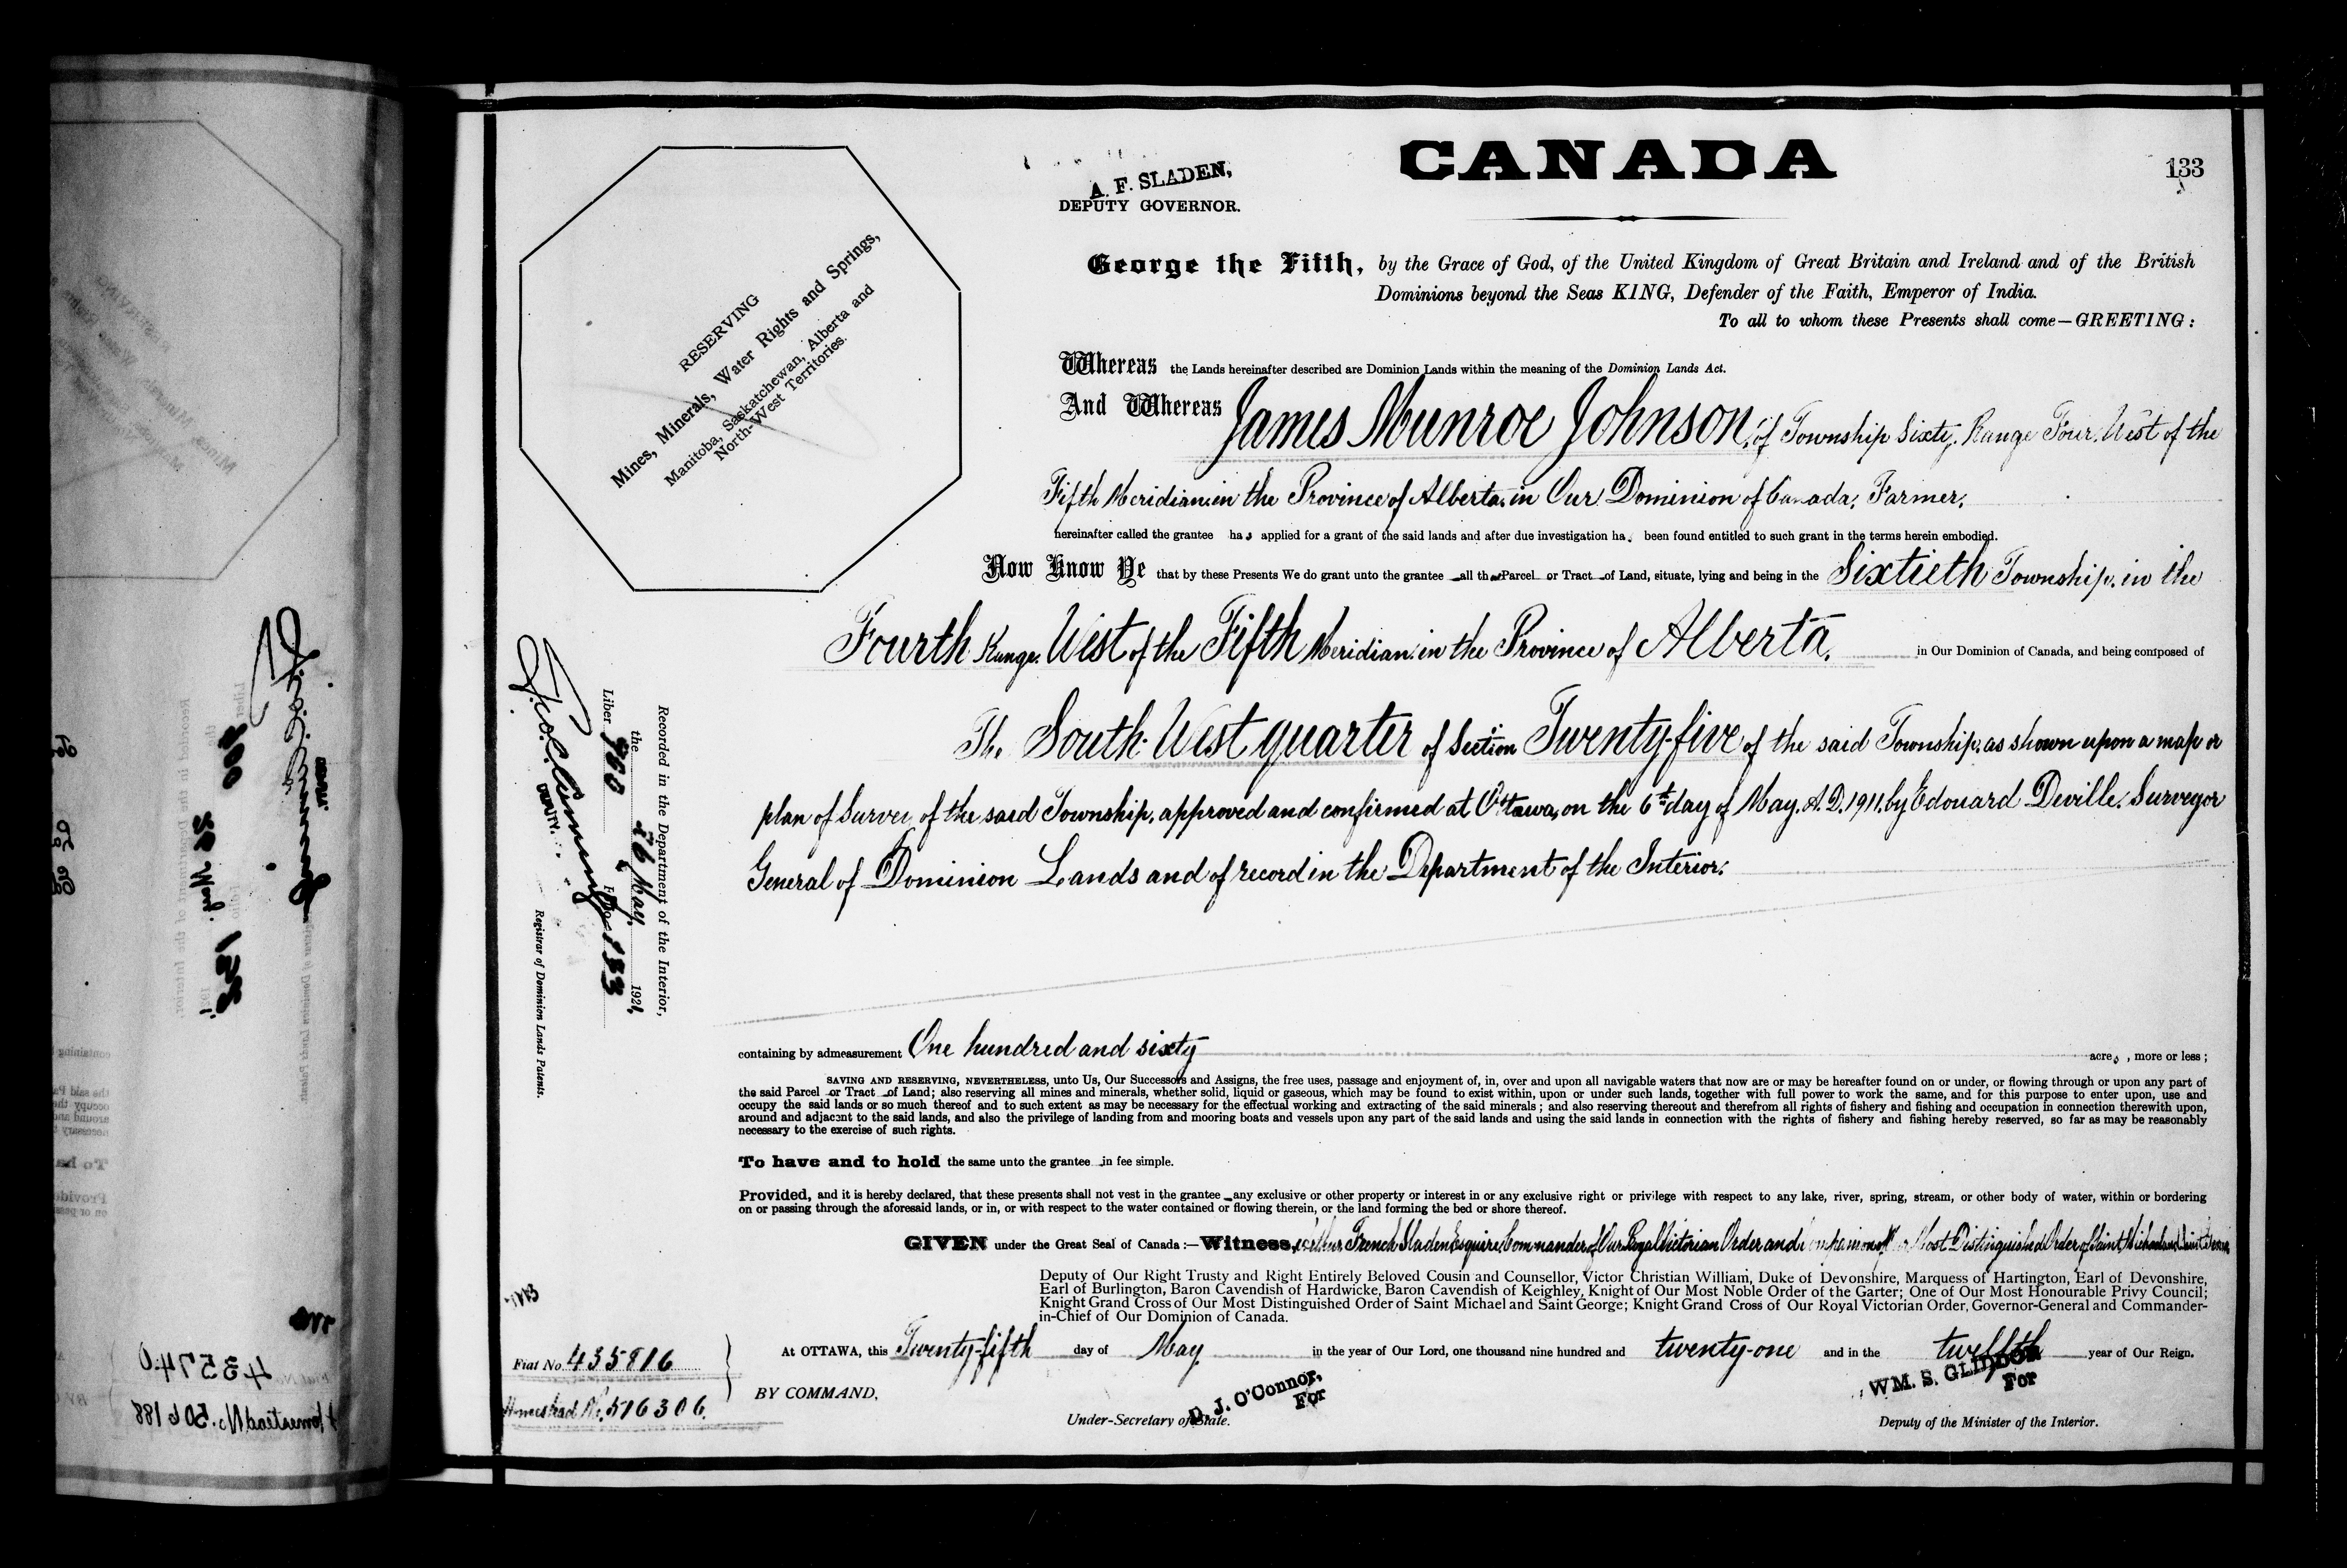 CANADA
133
A. F. SLADEN,
DEPUTY GOVERNOR.
RESERVING
Mines, Minerals, Water Rights and Springs,
Manitoba, Saskatchewan, Alberta and
North-West Territories.
George the Fifth, by the Grace of God, of the United Kingdom of Great Britain and Ireland and of the British
Dominions beyond the Seas KING, Defender of the Faith, Emperor of India.
To all to whom these Presents shall come—GREETING:
Whereas the Lands hereinafter described are Dominion Lands within the meaning of the Dominion Lands Act.
And Whereas James Munroe Johnson, of Township Sixty, Range Four, West of the
Fifth Meridian, in the Province of Alberta, in Our Dominion of Canada, Farmer,
hereinafter called the grantee has applied for a grant of the said lands and after due investigation has been found entitled to such grant in the terms herein embodied.
Now Know Ye that by these Presents We do grant unto the grantee all that Parcel or Tract of Land, situate, lying and being in the Sixtieth Township, in the
Fourth Range, West of the Fifth Meridian, in the Province of Alberta, in Our Dominion of Canada, and being composed of
The South West quarter of Section Twenty-five of the said Township, as shown upon a map or
plan of Survey of the said Township, approved and confirmed at Ottawa, on the 6th day of May, A.D. 1911, by Edouard Deville, Surveyor
General of Dominion Lands and of record in the Department of the Interior.
containing by admeasurement One hundred and sixty acres, more or less;
SAVING AND RESERVING, NEVERTHELESS, unto Us, Our Successors and Assigns, the free uses, passage and enjoyment of, in, over and upon all navigable waters that now are or may be hereafter found on or under, or flowing through or upon any part of
the said Parcel or Tract of Land; also reserving all mines and minerals, whether solid, liquid or gaseous, which may be found to exist within, upon or under such lands, together with full power to work the same, and for this purpose to enter upon, use and
occupy the said lands or so much thereof and to such extent as may be necessary for the effectual working and extracting of the said minerals; and also reserving thereout and therefrom all rights of fishery and fishing and occupation in connection therewith upon,
around and adjacent to the said lands, and also the privilege of landing from and mooring boats and vessels upon any part of the said lands and using the said lands in connection with the rights of fishery and fishing hereby reserved, so far as may be reasonably
necessary to the exercise of such rights.
To have and to hold the same unto the grantee in fee simple.
Provided, and it is hereby declared, that these presents shall not vest in the grantee any exclusive or other property or interest in or any exclusive right or privilege with respect to any lake, river, spring, stream, or other body of water, within or bordering
on or passing through the aforesaid lands, or in, or with respect to the water contained or flowing therein, or the land forming the bed or shore thereof.
GIVEN under the Great Seal of Canada:—Witness, Arthur French Sladen Esquire Commander of Our Royal Victorian Order and Companion of Our Most Distinguished Order of Saint Michael and Saint George
Deputy of Our Right Trusty and Right Entirely Beloved Cousin and Counsellor, Victor Christian William, Duke of Devonshire, Marquess of Hartington, Earl of Devonshire,
Earl of Burlington, Baron Cavendish of Hardwicke, Baron Cavendish of Keighley, Knight of Our Most Noble Order of the Garter; One of Our Most Honourable Privy Council;
Knight Grand Cross of Our Most Distinguished Order of Saint Michael and Saint George; Knight Grand Cross of Our Royal Victorian Order, Governor-General and Commander-
in-Chief of Our Dominion of Canada.
At OTTAWA, this Twenty-fifth day of May in the year of Our Lord, one thousand nine hundred and twenty-one and in the twelfth year of Our Reign.
BY COMMAND,
D. J. O'Connor,
For
Under-Secretary of State.
WM. S. GLIDDON
For
Deputy of the Minister of the Interior.
Fiat No. 435816
Homestead No. 516306.
Recorded in the Department of the Interior,
the 26 May, 1921,
Liber Folio 133
DEPUTY
Registrar of Dominion Lands Patents.
43574
Homestead No. 506188